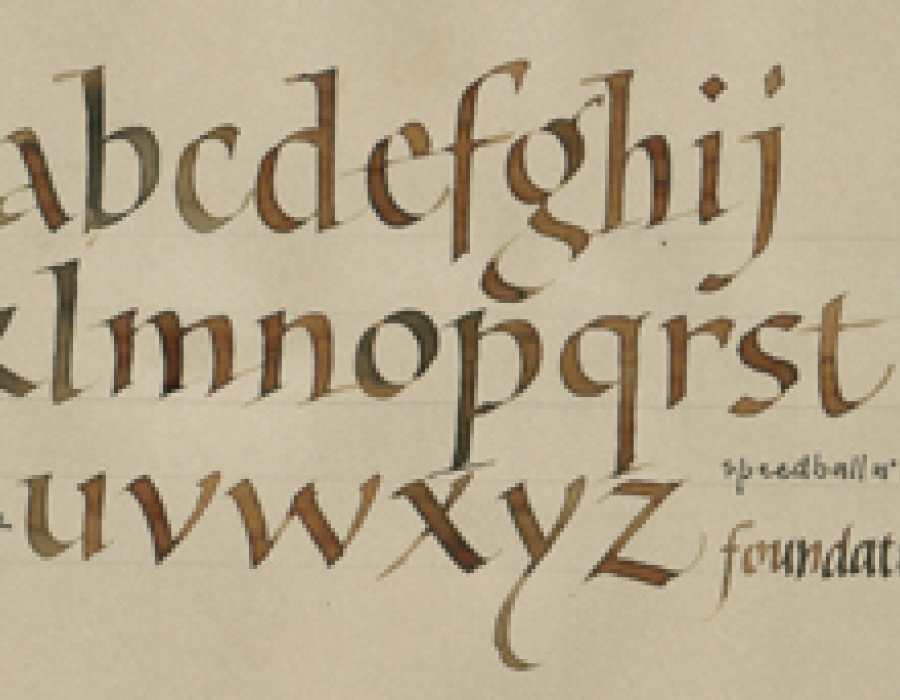 abcdefghij
klmnopqrst
uvwxyz
speedball
foundat